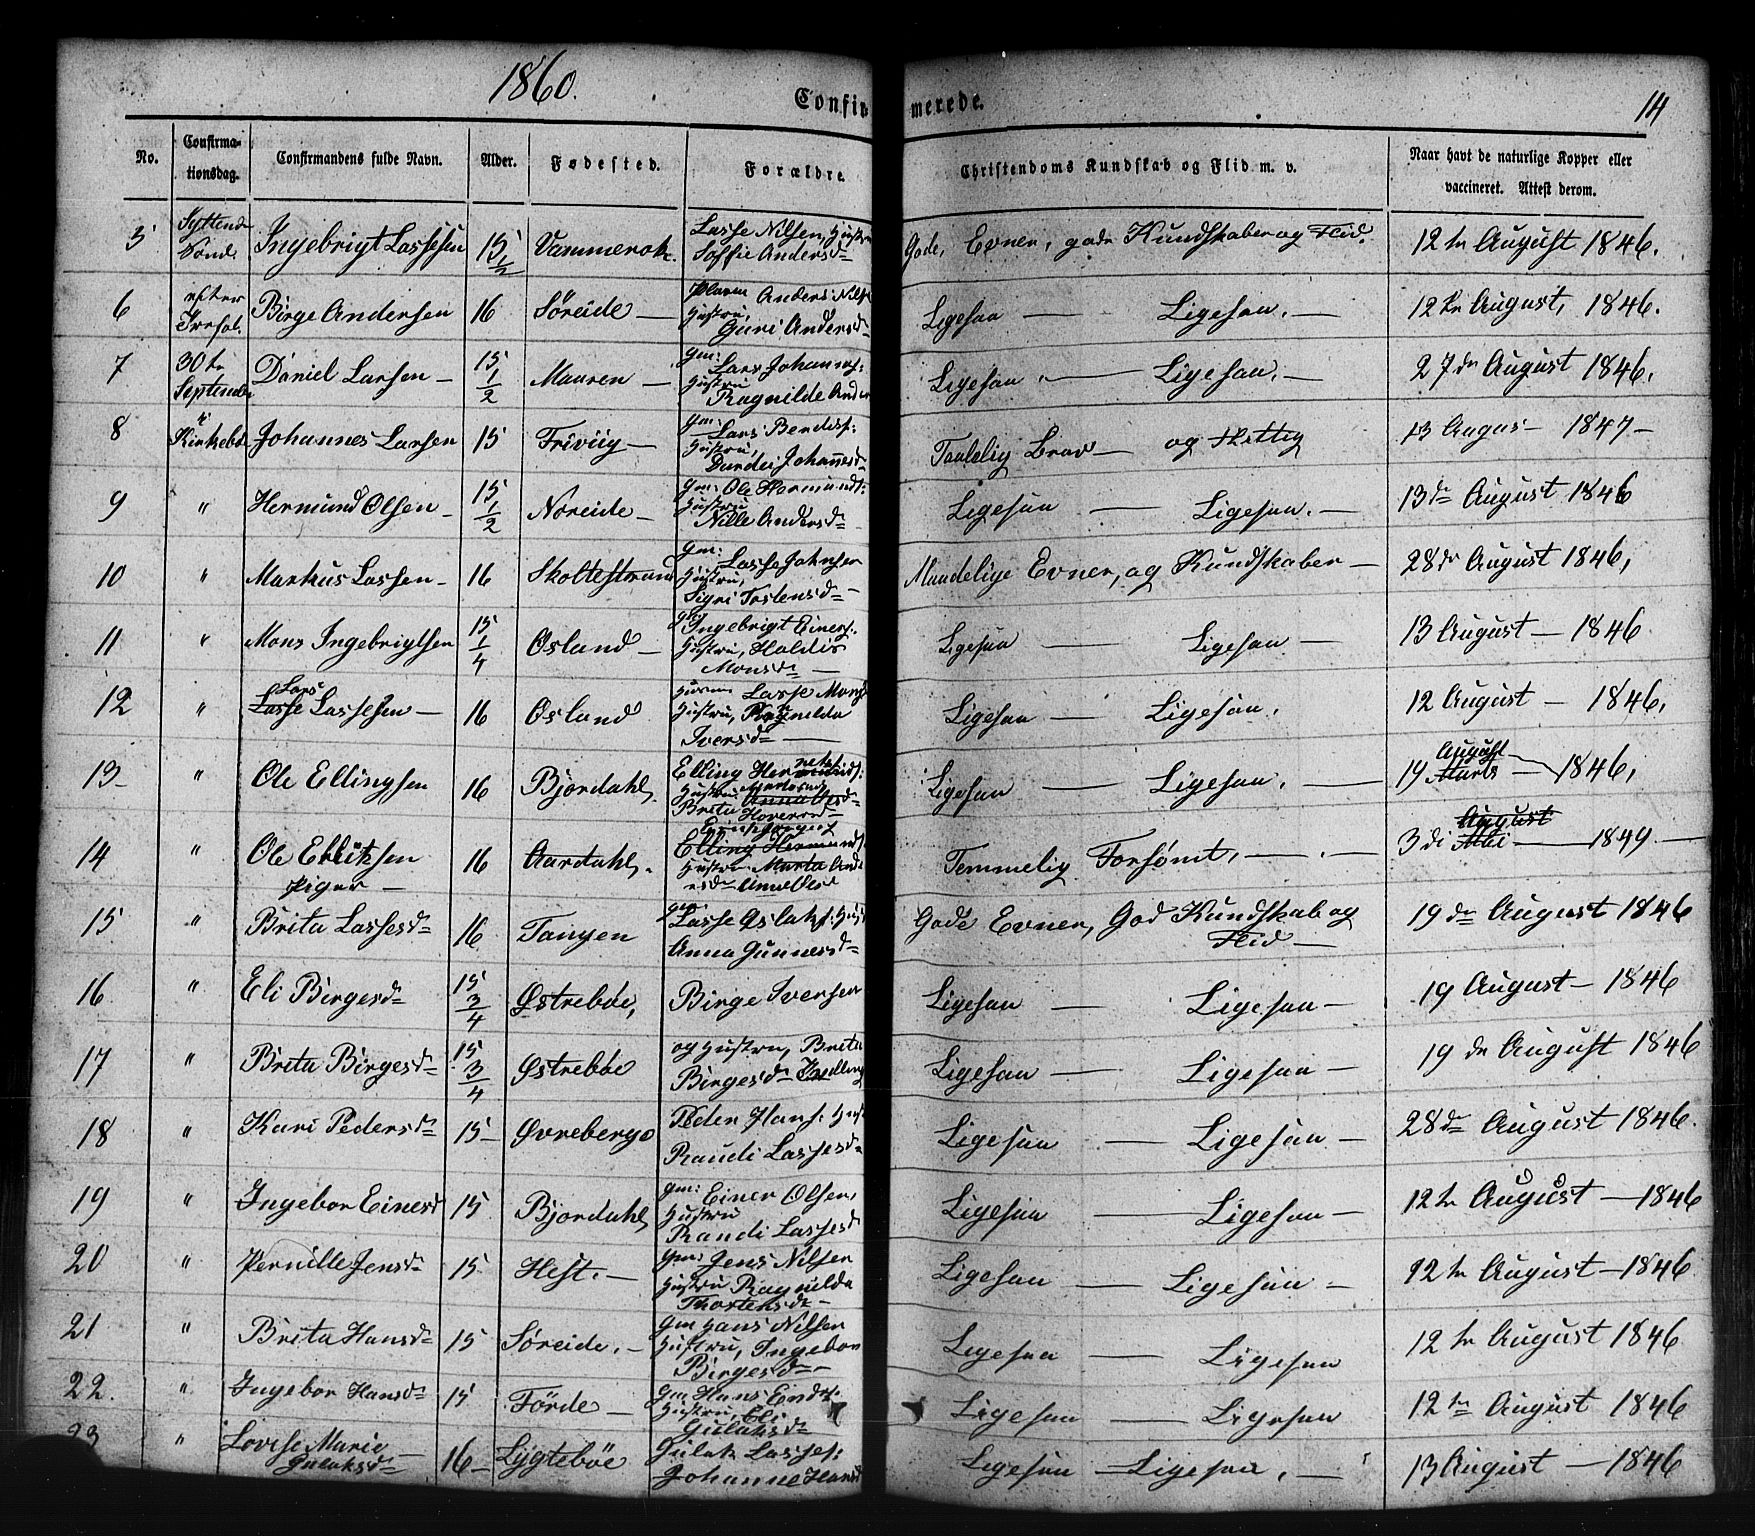 1860.
Confir merede.
No. Confirmationsdag. Confirmandens fulde Navn. Alder. Fødested. Forældre. Christendoms Kundskab og Flid m. v. Naar havt de naturlige Kopper eller vaccineret. Attest derom.
5 Syttende Sønd. Ingebrigt Lassesen 15 1/2 Lasse Nilsen, Hustru Soffie Andersd Gode, Evner, gode Kundskaber og Flid. 12te August 1846.
6 efter Birge Andersen 16 Söreide — Anders Nils Hustru, Guri Andersd Ligesaa — Ligesaa. — 12te August, 1846.
7 30te September Daniel Larsen — 15 1/2 Maaren — Gm: Lars Johannes: Hustru Ragnilde Ander Ligesaa. — Ligesaa. — 27de August 1846.
8 i Kirkebö Johannes Larsen 15 Gm: Lars Hustru, Johannesd Taalelig Brav — og flittig 13 Augus — 1847 —
9 " Hermund Olsen — 15 1/2 Noreide — Gm: Ole Hermunds: Hustru Nille Andersd Ligesaa — Ligesaa. — 13de August 1846
10 " Markus Lassen — 16 Skoltestrand Gm: Lasse Johnsen Hustru, Sigri Tostensd — Maadelige Evner, og Kundskaber — 28de August 1846,
11 " Mons Ingebrigtsen 15 1/4 Osland — Ingebrigt Einers: Hustru, Haldis Monsd — Ligesaa — Ligesaa — 13 August — 1846
12 " Lars Lasse Lassesen — 16 Osland Lasse Mons Hustru, Ragnilda Iversd — Ligesaa — Ligesaa. 12 August — 1846,
13 — " Ole Ellingsen 16 Bjordahl, Elling Hustru Brita Ligesaa — Ligesaa. — 19 August Marts — 1846,
14 " Ole 16 Aardahl. Elling Hermunds Hustru Marta Ander Temmelig Forsømt. — 3di August Mai — 1849. —
Piger —
15 " Brita Lassesd 16 Tangen Lasse Oslaks: Hust Anna Gunnersd Gode Evner, God Kundskab og Flid — 19de August 1846
16 " Eli Birgesd 15 3/4 Østrebøe, Birge Iversen Ligesaa — Ligesaa — 19 August — 1846
17 " Brita Birgesd 15 3/4 Østrebøe og Hustru, Brita Birgesd Tvilling Ligesaa — Ligesaa — 19de August 1846
18 " Kari Pedersd 15 — Øvrebergo Peder Hans: Hust Raudi Lassesd Ligesaa — Ligesaa — 28de August 1846.
19 " Ingebor Einersd 15 Bjordahl, Gm: Einer Olsen, Hustru Randi Lassesd Ligesaa — Ligesaa — 12te August — 1846
20 " Pernille Jensd 15 Hest. — Gm: Jens Nilsen Hustru Ragnilda Thostensd — Ligesaa — Ligesaa — 12te August — 1846
21 " Brita Hansd 15 Søreide. — Gm Hans Nilsen Hustru, Ingebor Birgesd — Ligesaa — Ligesaa 12te August 1846
22. " Ingebor Hansd 15 Förde — Gm Hans Hustru, Eli Gulaksd Ligesaa — Ligesaa 12te August 1846
23 " Lovise Marie Gulaksd 16 — Lygtebøe Gulak Lasses: Johanne Hansd Ligesaa — Ligesaa. — 13 August — 1846